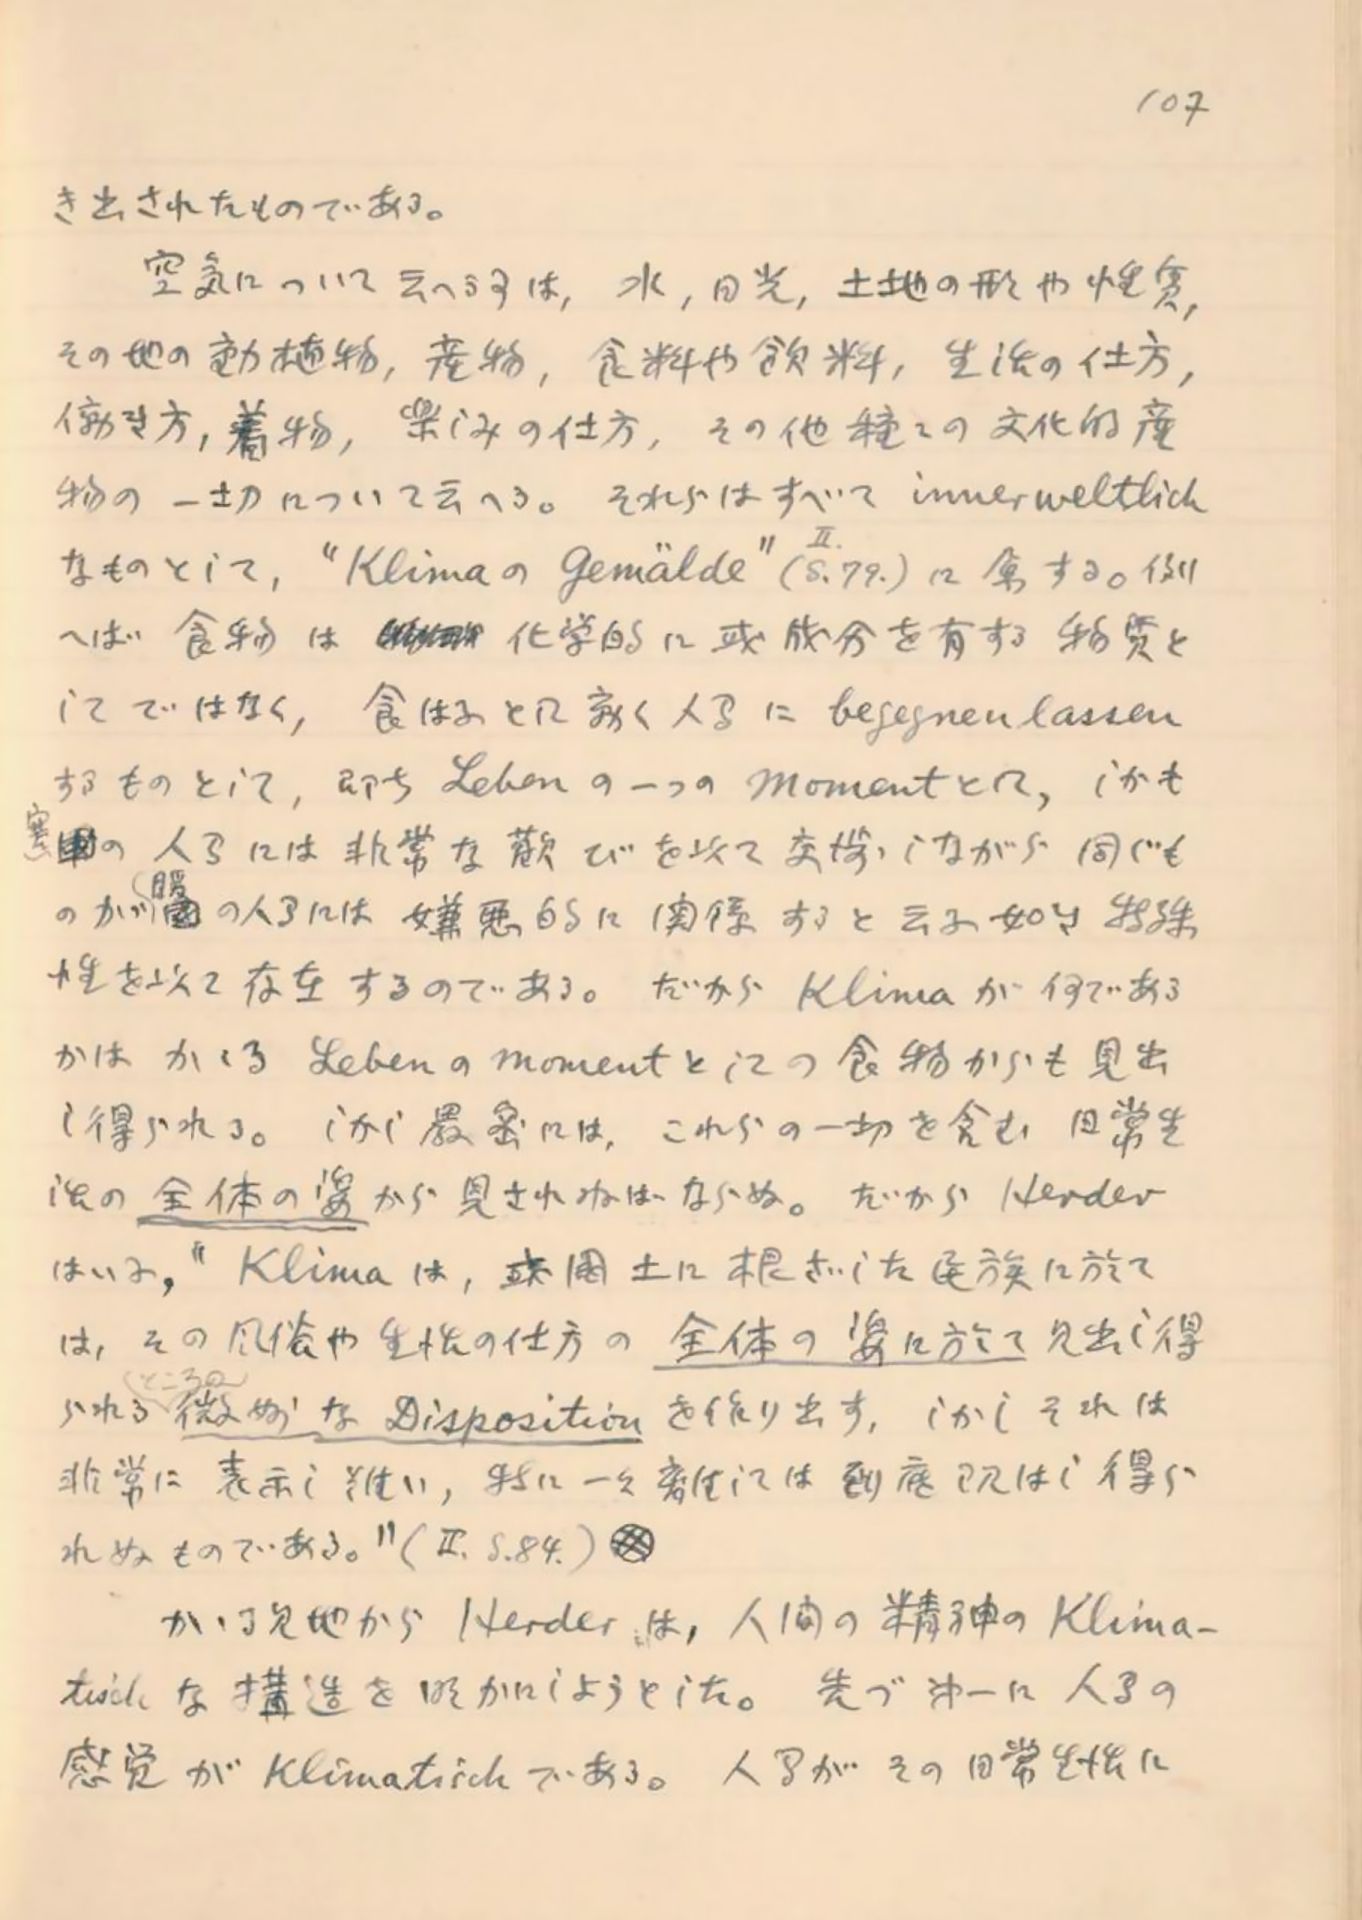 107
き出されたものである。
空気について云へる事は, 水, 日光, 土地の形や性質,
その地の動植物, 産物, 食料や飲料, 生活の仕方,
働き方, 着物, 楽しみの仕方, その他種々の文化的産
物の一切について云へる。それらはすべて innerweltlich
なものとして, "Klimaの Gemälde" (II. S.79.) に属する。例
へば食物は 化学的に或成分を有する物質と
してではなく, 食はふとして動く人間に begegnen lassen
するものとして, 即ち Leben の一つの Moment として, しかも
寒国の人間には非常な歓びを以て交渉しながら同じも
のが暖国の人間には嫌悪的に関係すると云ふ如き特殊
性を以て存在するのである。だから Klima が何である
かは かゝる Leben の Moment としての食物からも見出
し得られる。しかし厳密には, これらの一切を含む日常生
活の全体の姿から見されねばならぬ。だから Herder
はいふ, "Klima は, 或国土に根ざした民族に於て
は, その風俗や生活の仕方の全体の姿に於て見出し得
られるところの微妙な Disposition を作り出す, しかしそれは
非常に表示し難い, 特に一々離しては到底現はし得ら
れぬものである。" (II. S.84.)
かゝる見地から Herder は, 人間の精神の Klima-
tisch な構造を明かにしようとした。先づ第一に人間の
感覚が Klimatisch である。人間がその日常生活に